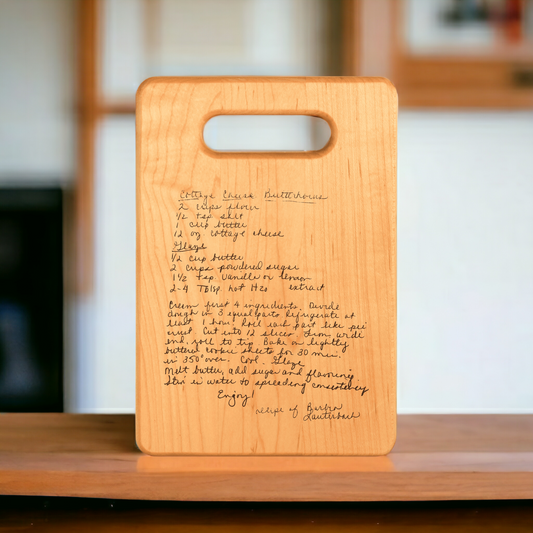 Cottage Cheese Butterhorns
2 cups flour
1/2 tsp salt
1 cup butter
12 oz cottage cheese
Glaze
1/2 cup butter
2 cups powdered sugar
1 1/2 tsp. vanilla or lemon
2-4 Tblsp. hot H2O extract
Cream first 4 ingredients. Devide
dough in 3 equal parts Refrigerate at
least 1 hour. Roll each part like pie
crust. Cut into 12 slices. From wide
end, roll to tip Bake on lightly
buttered cookie sheets for 30 min.
in 350° oven. Cool. Glaze
Melt butter, add sugar and flavoring
Stir in water to spreading consistency
Enjoy!
recipe of Barbra
Lauterbach